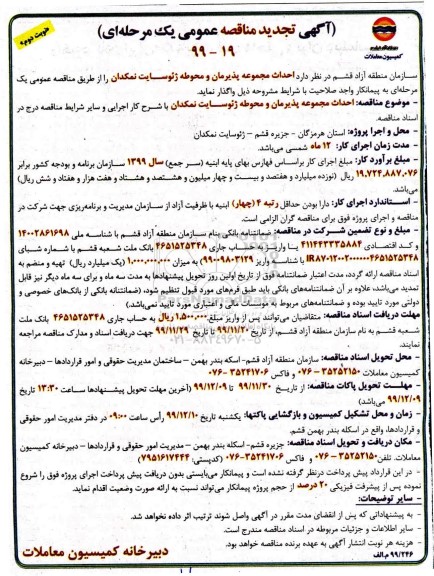 (آگهی تجدید مناقصه عمومی یک مرحله‌ای)
۹۹ - ۱۹
نوبت دوم
کمیسیون معاملات
سازمان منطقه آزاد قشم در نظر دارد احداث مجموعه پذیرمان و محوطه ژئوسایت نمکدان را از طریق مناقصه عمومی یک
مرحله‌ای به پیمانکار واجد صلاحیت با شرایط مشروحه ذیل واگذار نماید.
- موضوع مناقصه: احداث مجموعه پذیرمان و محوطه ژئوسایت نمکدان با شرح کار اجرایی و سایر شرایط مناقصه درج در
اسناد مناقصه.
- محل و اجرا پروژه: استان هرمزگان - جزیره قشم - ژئوسایت نمکدان
- مدت زمان اجرای کار: ۱۲ ماه شمسی می‌باشد.
- مبلغ برآورد کار: مبلغ اجرای کار براساس فهارس بهای پایه ابنیه (سر جمع) سال ۱۳۹۹ سازمان برنامه و بودجه کشور برابر
۱۹.۷۲۴.۸۸۷.۰۷۶ ریال (نوزده میلیارد و هفتصد و بیست و چهار میلیون و هشتصد و هشتاد و هفت هزار و هفتاد و شش ریال)
می‌باشد.
- استاندارد اجرای کار: دارا بودن حداقل رتبه ۴ (چهار) ابنیه با ظرفیت آزاد از سازمان مدیریت و برنامه‌ریزی جهت شرکت در
مناقصه و اجرای پروژه فوق برای مناقصه گران الزامی است.
- مبلغ و نوع تضمین شرکت در مناقصه: ضمانتنامه بانکی بنام سازمان منطقه آزاد قشم با شناسه ملی ۱۴۰۰۲۸۶۱۶۹۸
و کد اقتصادی ۴۱۱۴۴۳۳۳۵۸۸۴ یا واریز به حساب جاری ۴۶۵۱۵۲۵۳۴۸ بانک ملت شعبه قشم با شماره شبای
با شناسه واریز ۳۱۲۹-۹۸-۰۹۹ به میزان ۱.۰۰۰.۰۰۰.۰۰۰ (یک میلیارد ریال) تهیه و منضم به
اسناد مناقصه ارائه گردد، مدت اعتبار ضمانتنامه فوق از تاریخ اولین روز تحویل پیشنهادها به مدت سه ماه و برای سه ماه دیگر نیز قابل
تمدید می‌باشد، علاوه بر آن ضمانتنامه‌های بانکی باید طبق فرم‌های مورد قبول تنظیم شود، (ضمانتنامه بانکی از بانک‌های خصوصی و
دولتی مورد تایید بوده و ضمانتنامه‌های مربوط به موسسات مالی و اعتباری مورد تایید نمی‌باشد)
مهلت دریافت اسناد مناقصه: متقاضیان می‌توانند پس از واریز مبلغ ۱.۵۰۰.۰۰۰ ریال به حساب جاری ۴۶۵۱۵۲۵۳۴۸ بانک ملت
شعبه قشم به نام سازمان منطقه آزاد قشم، از تاریخ ۹۹/۱۱/۲۰ تا تاریخ ۹۹/۱۱/۲۹ جهت دریافت اسناد و مدارک مناقصه مراجعه
نمایند.
- محل تحویل اسناد مناقصه: سازمان منطقه آزاد قشم- اسکه بندر بهمن - ساختمان مدیریت حقوقی و امور قراردادها - دبیرخانه
کمیسیون معاملات ۳۵۲۵۲۱۵۰-۰۷۶ و فاکس ۳۵۲۴۱۷۰۶-۰۷۶
- مهلت تحویل پاکات مناقصه: از تاریخ ۹۹/۱۱/۳۰ تا ۹۹/۱۲/۰۹ (آخرین مهلت تحویل پیشنهادها ساعت ۱۳:۳۰ تاریخ
۹۹/۱۲/۰۹ می‌باشد)
- زمان و محل تشکیل کمیسیون و بازگشایی پاکتها: یکشنبه تاریخ ۹۹/۱۲/۱۰ رأس ساعت ۰۹:۰۰ در دفتر مدیریت امور حقوقی
و قراردادها، واقع در اسکله بندر بهمن قشم.
- مکان دریافت و تحویل اسناد مناقصه: جزیره قشم- اسکله بندر بهمن – مدیریت امور حقوقی و قراردادها – دبیرخانه کمیسیون
معاملات. تلفن ۳۵۲۵۲۱۵۰-۰۷۶ و فاکس ۳۵۲۴۱۷۰۶-۰۷۶ (کدپستی: ۷۹۵۱۶۱۷۴۴۴)
- در این قرارداد پیش پرداخت درنظر گرفته نشده است و پیمانکار می‌بایستی بدون دریافت پیش پرداخت اجرای پروژه فوق را شروع
نموده پس از پیشرفت فیزیکی ۲۰ درصد از حجم پروژه پیمانکار می‌تواند نسبت به ارائه صورت وضعیت اقدام نماید.
- سایر توضیحات:
- به پیشنهاداتی که پس از انقضای مدت مقرر در آگهی واصل شوند ترتیب اثر داده نخواهد شد.
- سایر اطلاعات و جزئیات مربوطه در اسناد مناقصه مندرج است.
- هزینه هر نوبت انتشار آگهی به عهده برنده مناقصه خواهد بود.
۹۹/۲۴۶ م.الف
دبیرخانه کمیسیون معاملات